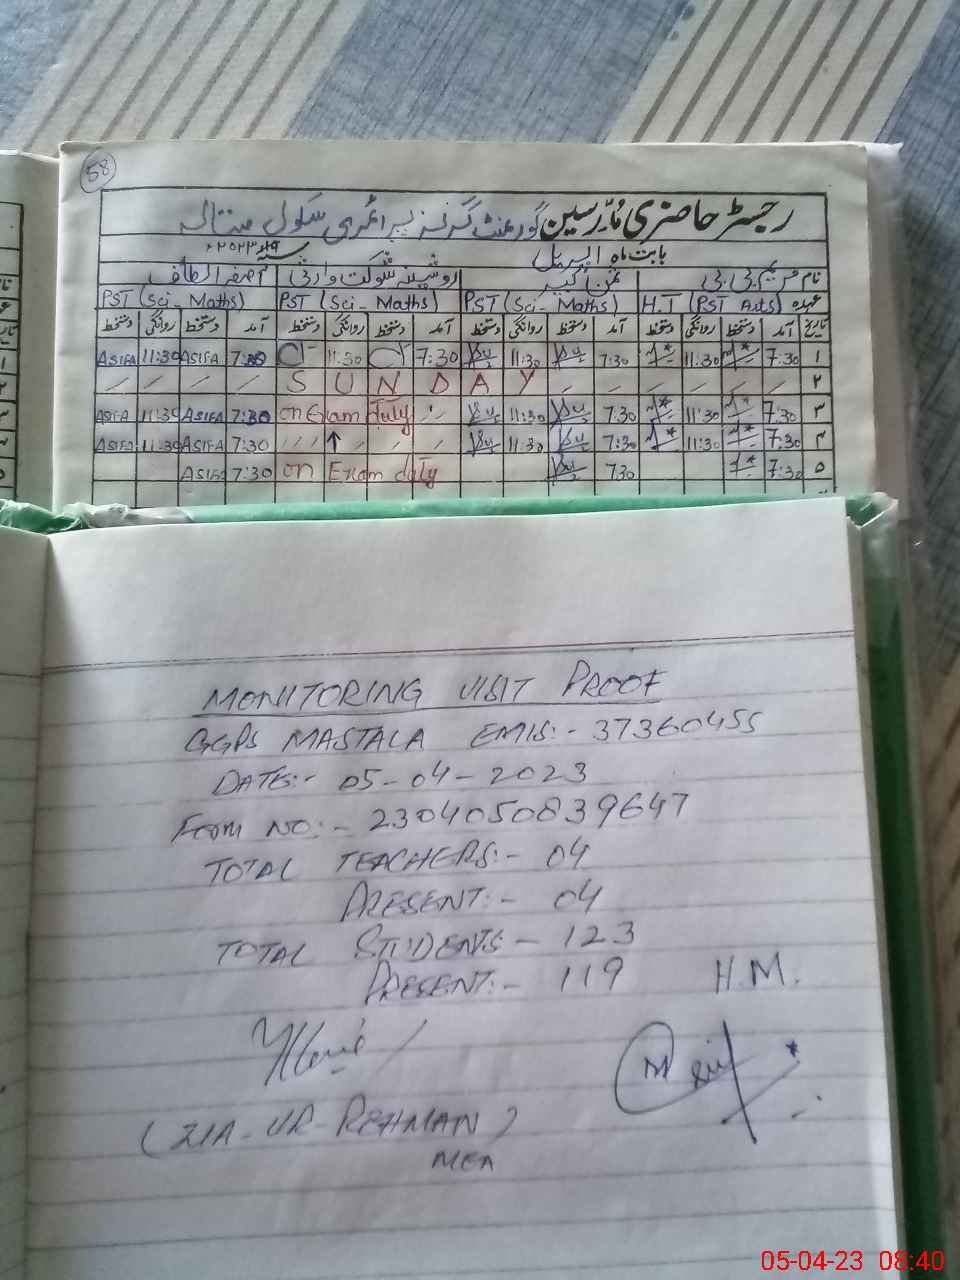 58
رجسٹر حاضری مُدرسین گورنمنٹ گرلز پرائمری سکول مستالہ
بابت ماہ اپریل سنہ ۲۰۲۳ء
نام مریم بی بی ثمن کبیر روشینہ شوکت وارثی آصفہ الطاف
عہدہ H.T (PST Arts) PST (Sci - Maths) PST (Sci - Maths) PST (Sci - Maths)
تاریخ آمد دستخط روانگی دستخط آمد دستخط روانگی دستخط آمد دستخط روانگی دستخط آمد دستخط روانگی دستخط
۱ 7:30 11:30 7:30 11:30 7:30 11:30 7:30 ASIFA 11:30 ASIFA
۲ S U N D A Y
۳ 7:30 11:30 7:30 11:30 on Exam duty 7:30 ASIFA 11:30 ASIFA
۴ 7:30 11:30 7:30 11:30 7:30 ASIFA 11:30 ASIFA
۵ 7:30 7:30 on Exam duty 7:30 ASIFA
MONITORING VISIT PROOF
GGPS MASTALA EMIS:- 37360455
DATE:- 05-04-2023
Form NO:- 2304050839647
TOTAL TEACHERS:- 04
PRESENT:- 04
TOTAL STUDENTS:- 123
PRESENT:- 119 H.M.
(ZIA-UR-REHMAN)
MEA
05-04-23 08:40